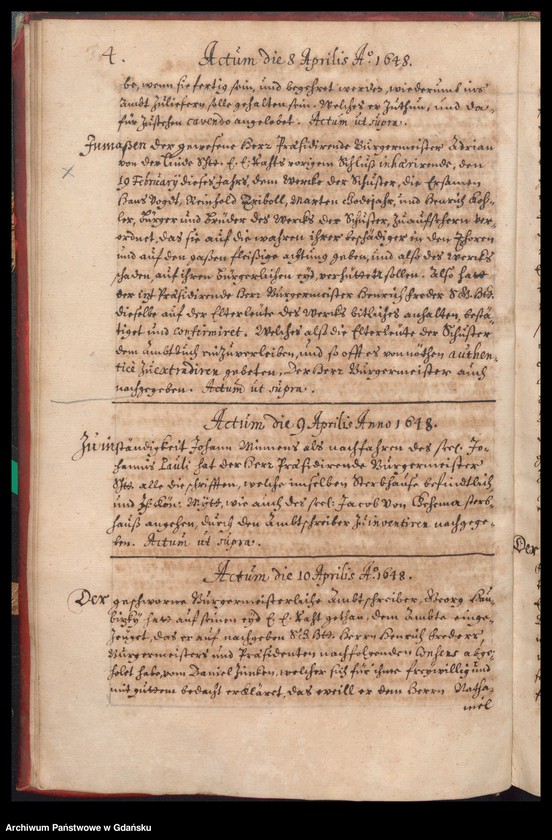 4.
Actum die 8 Aprilis Aº 1648.
be, wenn sie fertig sein, und begehret werden, wiederumb ins
Ambt zuliefern solle gehalten sein. Welches er zuthun, und da-
für zustehen cavendo angelobet. Actum ut supra.
Inmaßen der gewesene Herr Präsidirende Bürgermeister Adrian
von der Linde E. E. Rahts vorigem Schluß inhærirende, den
19 February dieses Jahrs, dem Wercke der Schuster, die Ersamen
Hans Vogdt, Reinhold Marten und Henrich Koh-
ler, Bürger und Brüder des Wercks der Schuster, zu auffsehern ver-
ordnet, das sie auf die wahren ihrer beschädiger in den Thoren
und auf den gaßen fleißige achtung geben, und also des Wercks
schaden, auf ihren bürgerlichen eyd, verhütten sollen. Also hatt
der itzt Präsidirende Herr Bürgermeister Henrich Freder
dieselbe auf der Elterleute des Wercks bitliches anhalten, bestä-
tiget und confirmiret. Welches alß die Elterleute der Schuster
dem Ambtbuch einzuverleiben, und so offt es von nöthen authen-
ticè zu extradiren gebeten, Der Herr Bürgermeister auch
nachgegeben. Actum ut supra.
Actum die 9 Aprilis Anno 1648.
Zuinständigkeit Johann als nachfahren des seel. Jo-
hannis Pauli hat der Herr Präsidirende Bürgermeister
alle die schrifften, welche im selben Sterbhause befindtlich
und Kön: Maytt, wie auch des seel: Jacob von Behema sterb-
hauß angehen, durch den Ambtschreiber zu inventiren nachgege-
ben. Actum ut supra.
Actum die 10 Aprilis Aº 1648.
Der geschworne Bürgermeisterliche Ambtschreiber, Georg
hatt auf seinen eyd E. E. Raht gethan, dem Ambte einge-
zeuget, das er auf nachgeben Herrn Henrich Freders,
Bürgermeisters und Präsidenten nachfolgenden Consens abge-
holet habe, von Daniel welcher sich für ihme freywillig und
mit guttem bedacht erkläret, das weill er dem Herrn Natha-
niel
Der
Archiwum Państwowe w Gdańsku